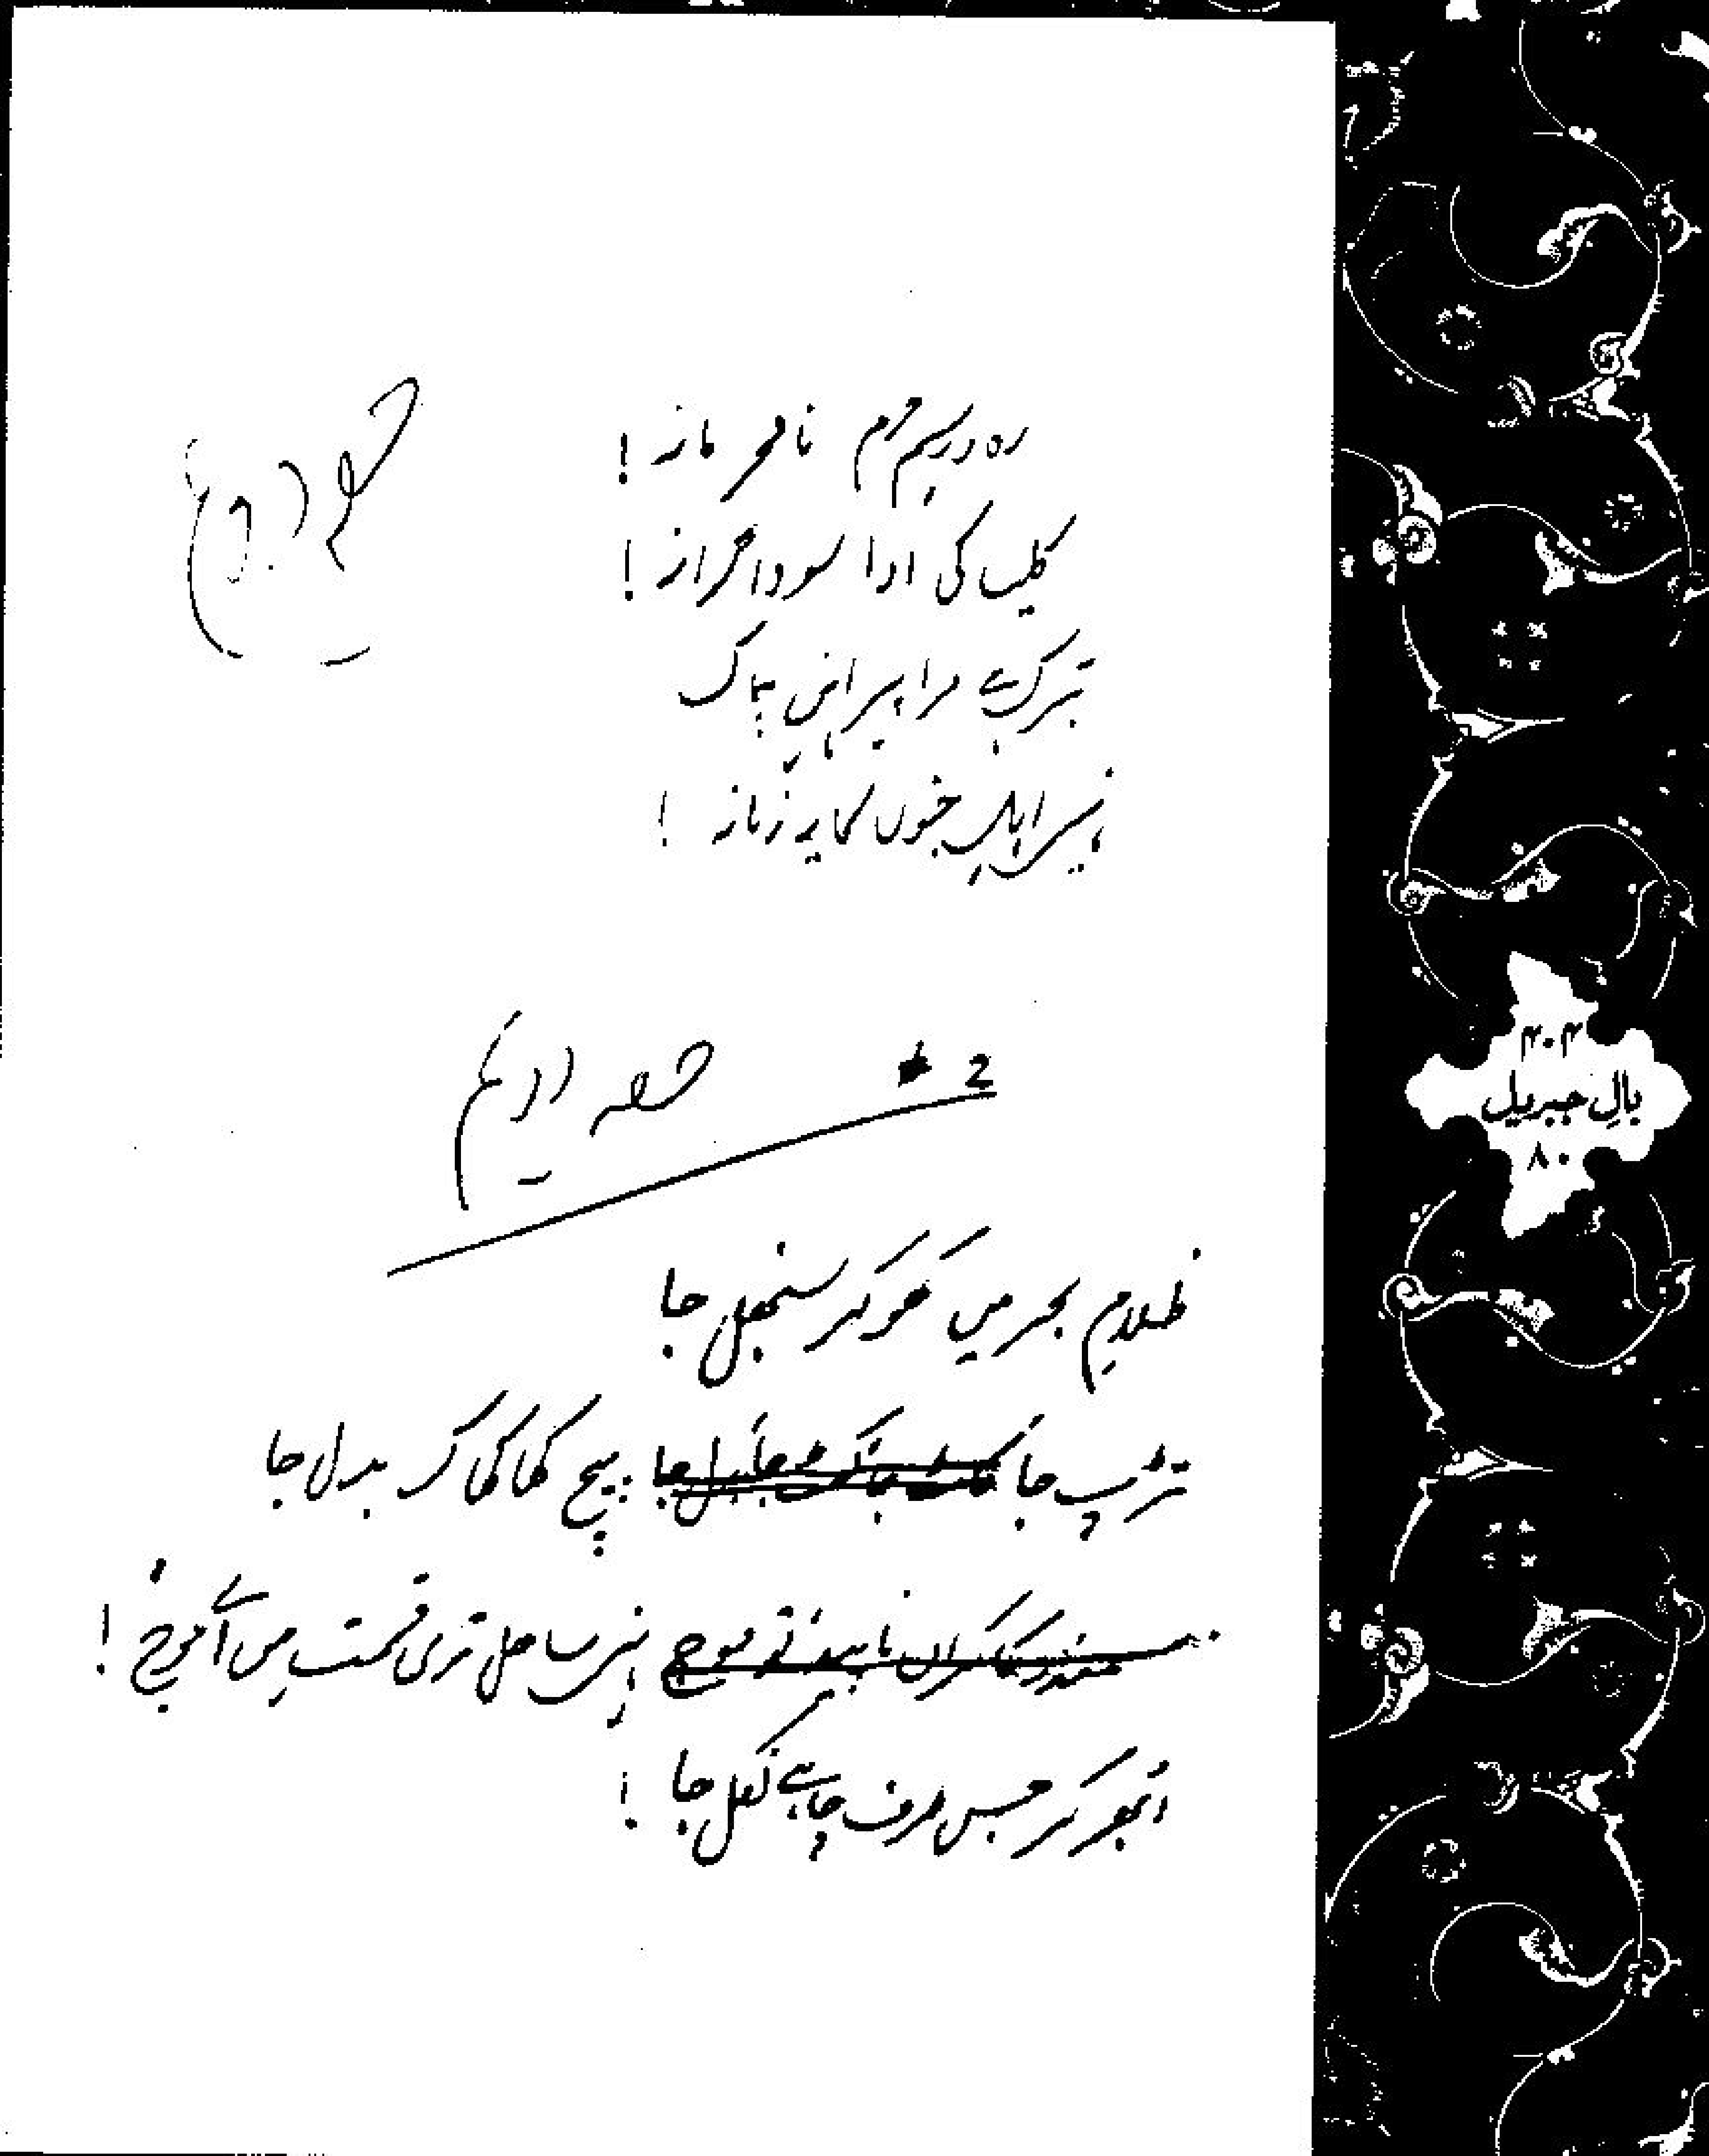 رہ و رسمِ حرم نا محرمانہ !
کلیسا کی ادا سوداگرانہ !
تبرک ہے مرا پیراہنِ چاک
نہیں اہلِ جنوں کا یہ زمانہ !
2
ظلامِ بحر میں کھو کر سنبھل جا
تڑپ جا پیچ کھا کھا کر بدل جا
نہیں ساحل تری قسمت میں اے موج !
ابھر کر جس طرف چاہے نکل جا !
۴۰۴
بالِ جبریل
۸۰